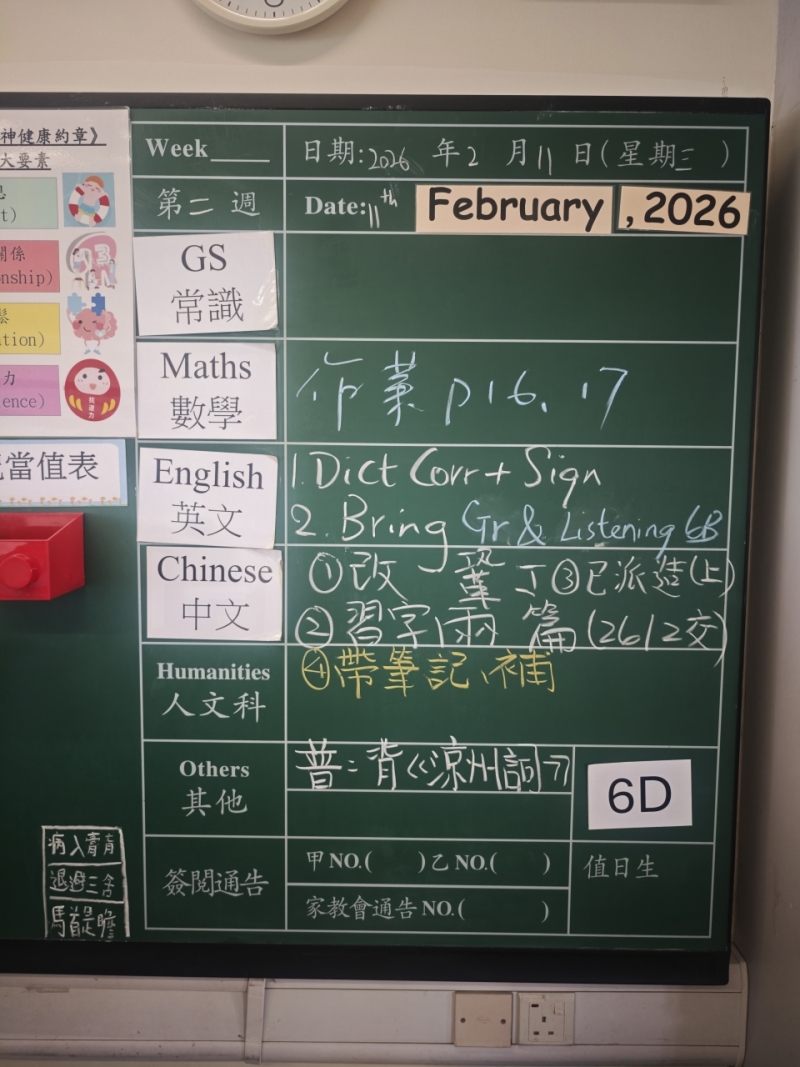 神健康約章》
大要素
t)
關係
onship)
鬆
ation)
力
ence)
當值表
Week____ 日期:2026 年2 月11 日(星期三 )
第二 週 Date:11th February ,2026
GS
常識
Maths
數學
作業 p16、17
English
英文
1. Dict Corr + Sign
2. Bring Gr & Listening 6B
Chinese
中文
①改 鞏 丁 ③已派造(上)
②習字、兩 篇(26/2交)
Humanities
人文科
④帶筆記、補
Others
其他
普:背《涼州詞》
6D
簽閱通告
甲NO.( )乙NO.( )
值日生
家教會通告NO.( )
病入膏肓
退避三舍
馬首是瞻